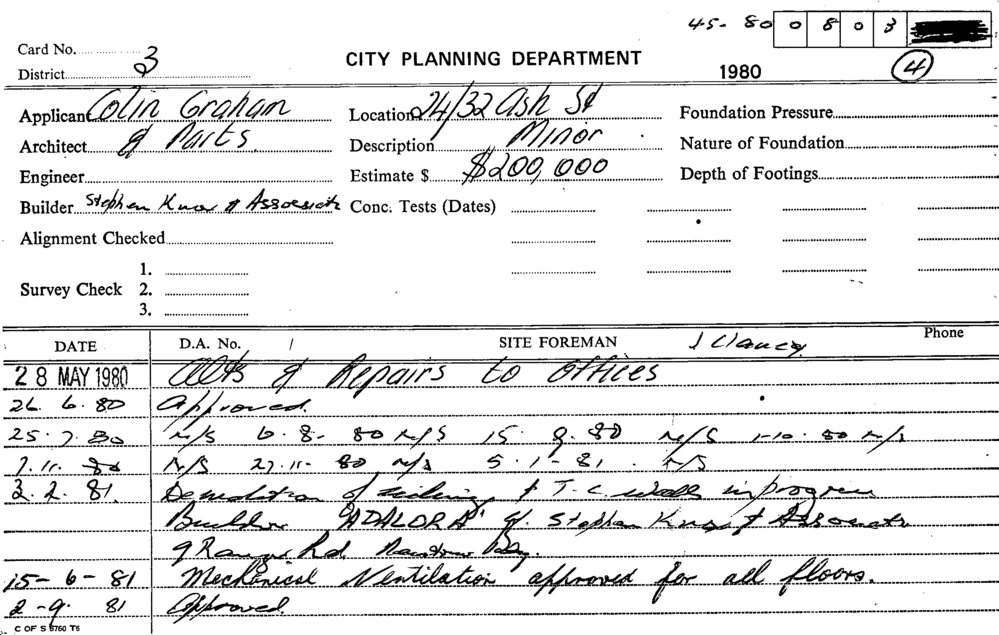 45- 80 0 8 0 3
Card No. 3
District
CITY PLANNING DEPARTMENT
1980 4
Applicant Colin Graham
Location 24/32 Ash St
Foundation Pressure
Architect & Parts
Description Minor
Nature of Foundation
Engineer
Estimate $ $200,000
Depth of Footings
Builder Stephen Knox & Associate
Conc. Tests (Dates)
Alignment Checked
1.
Survey Check 2.
3.
DATE D.A. No. / SITE FOREMAN J Clancy Phone
28 MAY 1980 Alts & Repairs to offices
26. 6. 80 Approved.
25. 7. 80 N/S 6. 8- 80 N/S 15. 9. 80 N/S 1-10. 80 N/S
7. 11. 80 N/S 27. 11- 80 N/S 5. 1- 81. N/S
3. 2. 81. Demolition of ceiling & T.C walls in progress
Builder "ADALORA" Stephen Knox & Associate
9 Rd.
15- 6- 81 Mechanical Ventilation approved for all floors.
2-9. 81 Approved.
C OF S 5760 T6